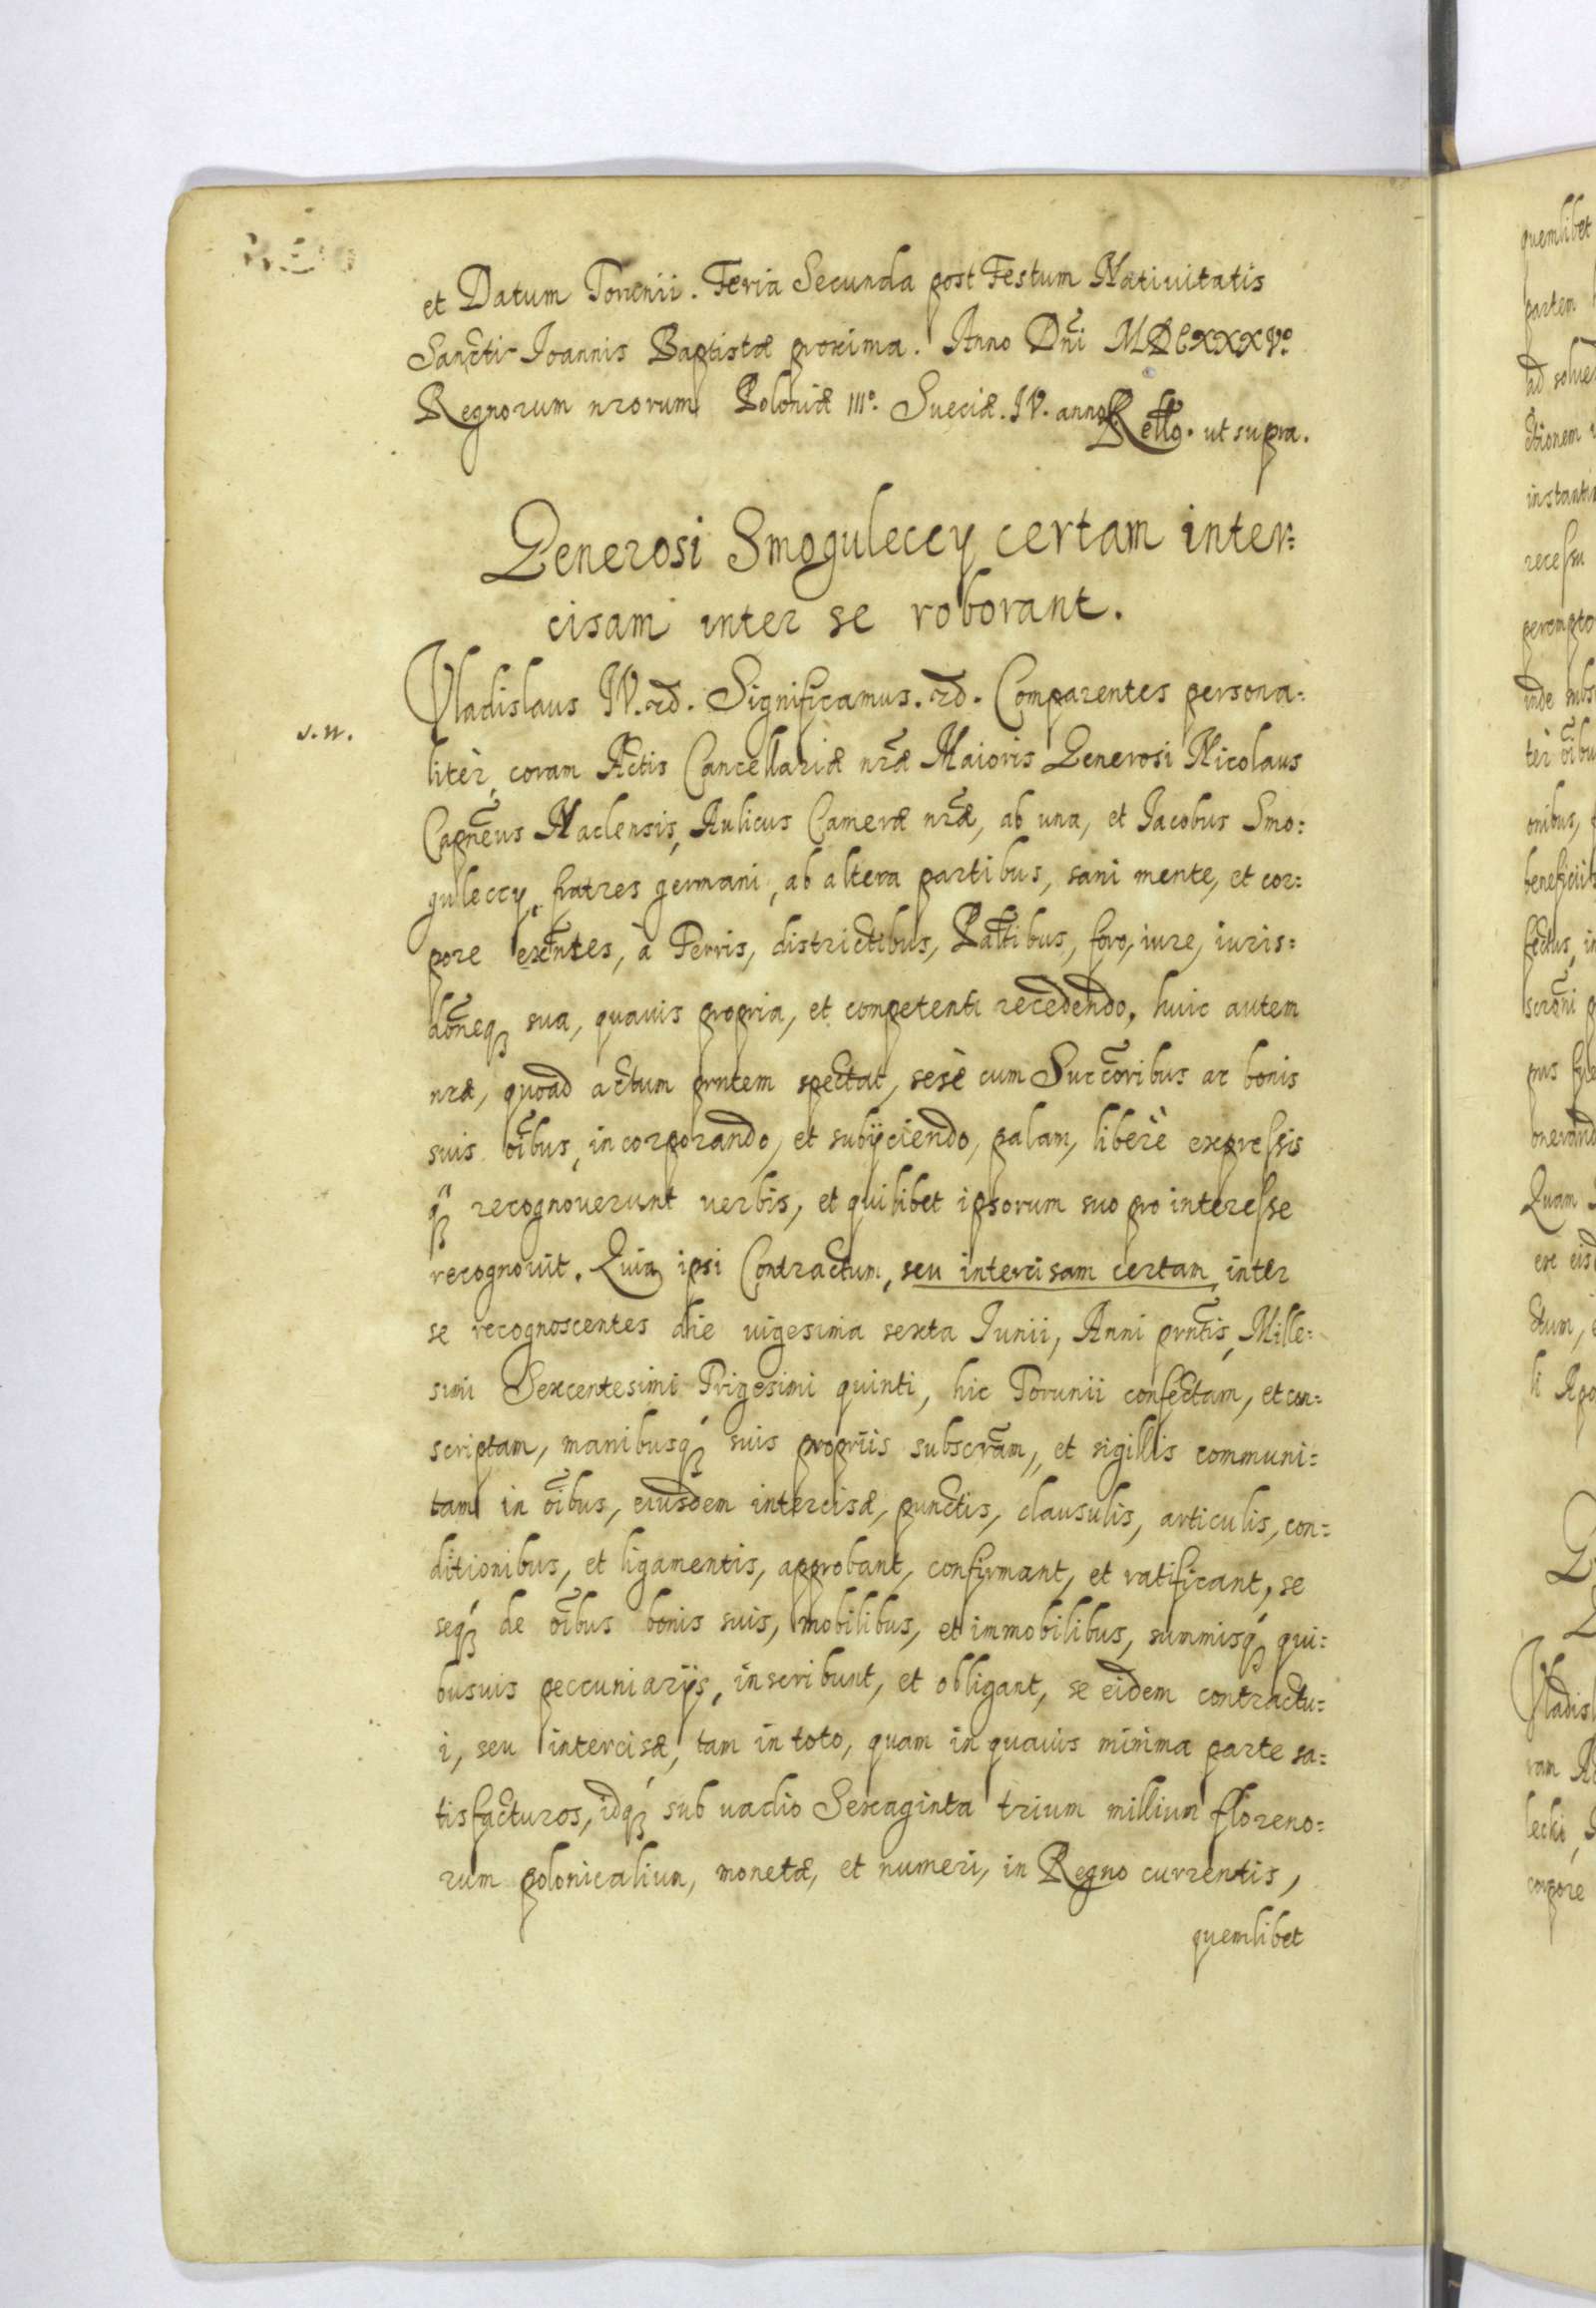 et Datum Torunii. Feria Secunda post Festum Natiuitatis
Sancti Ioannis Baptistæ proxima. Anno Dñi MDCXXXVº.
Regnorum nrorum Poloniæ IIIº. Sueciæ. IV. anno.
Rello. ut supra.
Generosi Smoguleccy certam inter=
cisam inter se roborant.
Vladislaus IV. etc. Significamus. etc. Comparentes persona=
s.w.
litèr, coram Actis Cancellariæ nr̃æ Maioris Generosi Nicolaus
Capñeus Naclensis, Aulicus Cameræ nr̃æ, ab una, et Jacobus Smo=
guleccy, fratres germani, ab altera partibus, sani mente, et cor=
pore exñtes, à Terris, districtibus, Palatibus, foro, iure, iuris=
dõneq; sua, quauis propria, et competenti recedendo, huic autem
nræ, quoad actum prntem spectat, sesè cum Succõribus ac bonis
suis oĩbus, incorporando, et subijciendo, palam, liberè expressis
q; recognouerunt verbis, et quilibet ipsorum suo pro interesse
recognouit. Quia ipsi Contractum, seu intercisam certam, inter
se recognoscentes die uigesima sexta Iunii, Anni prñtis, Mille=
simi Sexcentesimi Trigesimi quinti, hic Torunii confectam, et con=
scriptam, manibusq; suis propriis subscrãm, et sigillis communi=
tam in oĩbus, eiusdem intercisæ, punctis, clausulis, articulis, con=
ditionibus, et ligamentis, approbant, confirmant, et ratificant, se
seq; de oĩbus bonis suis, mobilibus, et immobilibus, summisq; qui=
busuis peccuniarijs, inscribunt, et obligant, se eidem contractu=
i, seu intercisæ, tam in toto, quam in quauis minima parte sa=
tisfacturos, idq; sub uadio Sexaginta trium millium floreno=
rum polonicalium, monetæ, et numeri, in Regno currentis,
quemlibet